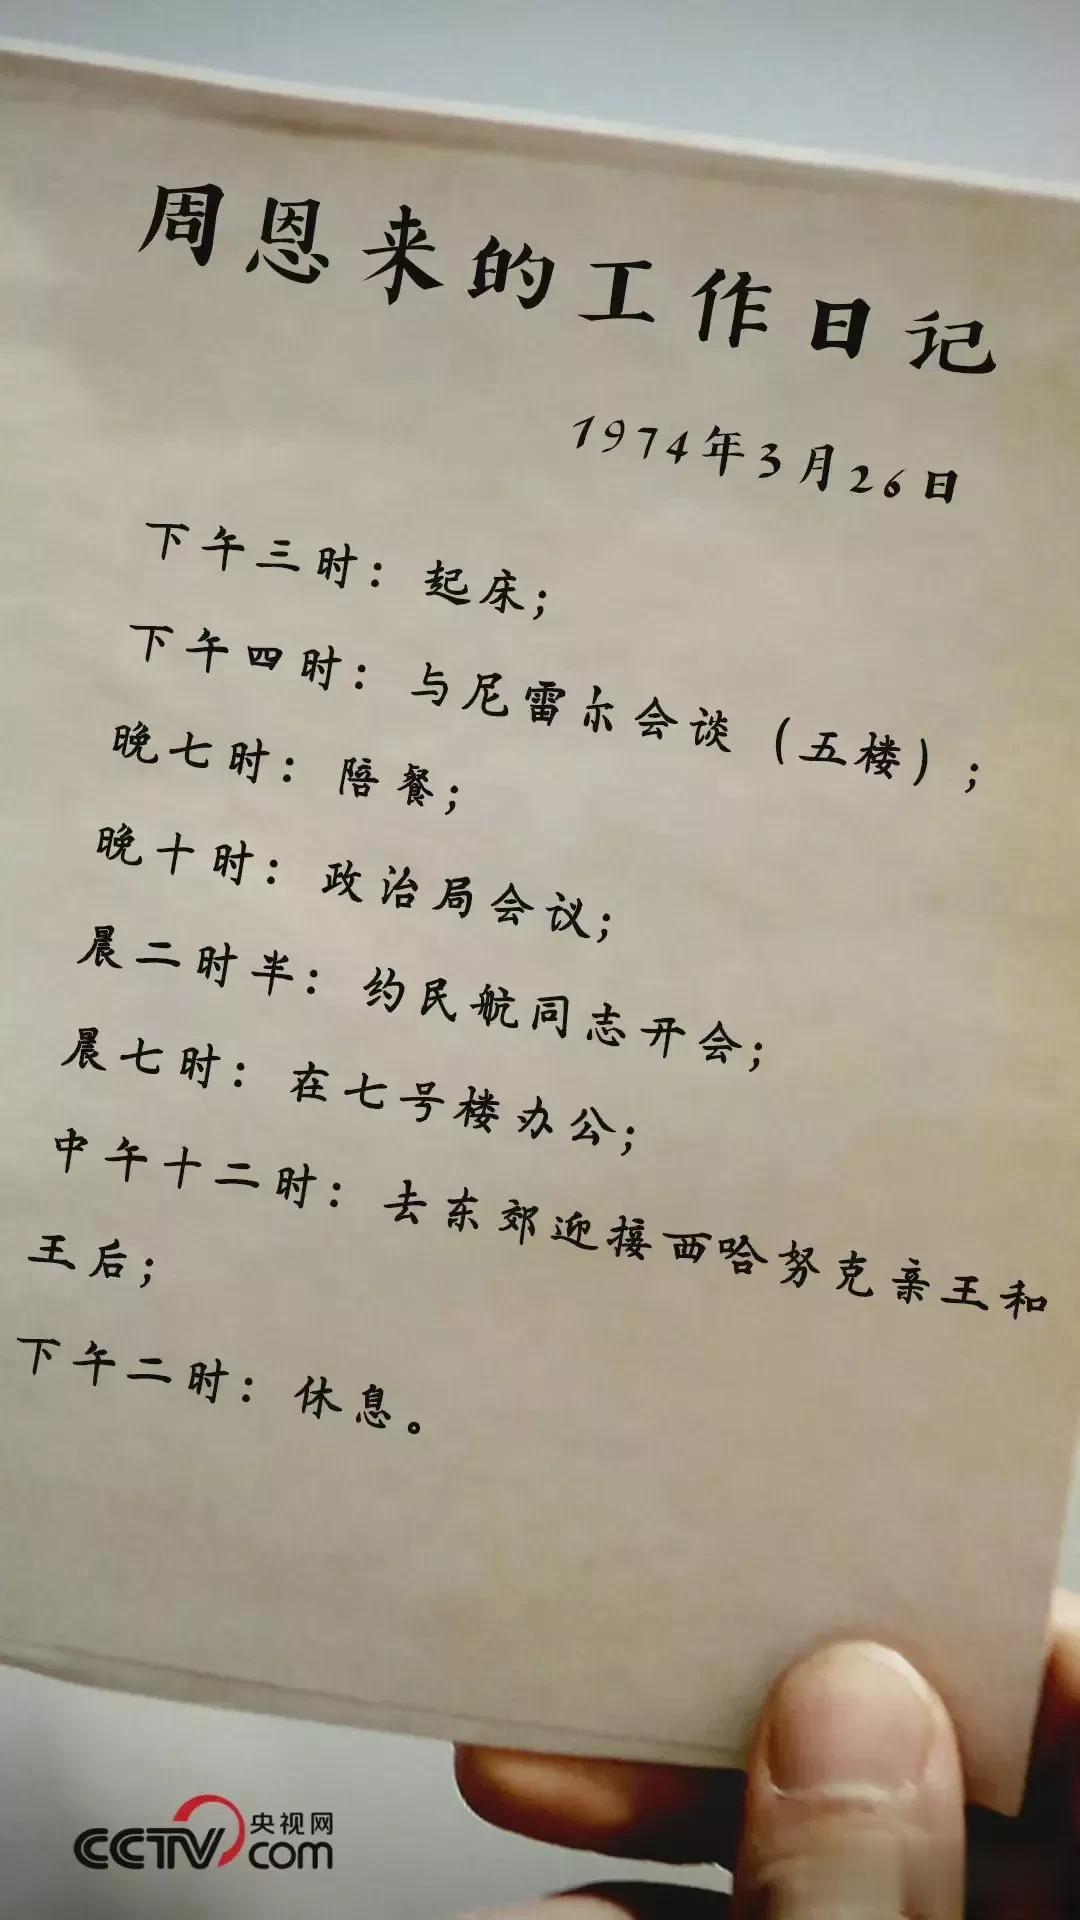 周恩来的工作日记
1974年3月26日
下午三时：起床；
下午四时：与尼雷尔会谈（五楼）；
晚七时：陪餐；
晚十时：政治局会议；
晨二时半：约民航同志开会；
晨七时：在七号楼办公；
中午十二时：去东郊迎接西哈努克亲王和
王后；
下午二时：休息。
CCTV.com 央视网